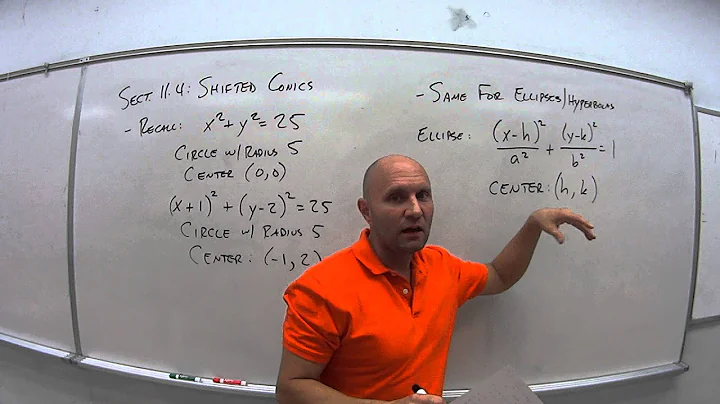 Sect. 11.4: Shifted Conics
- Recall: x² + y² = 25
Circle w/ Radius 5
Center (0,0)
(x+1)² + (y-2)² = 25
Circle w/ Radius 5
Center: (-1, 2)
- Same For Ellipses/Hyperbolas
Ellipse: (x-h)²/a² + (y-k)²/b² = 1
Center: (h, k)